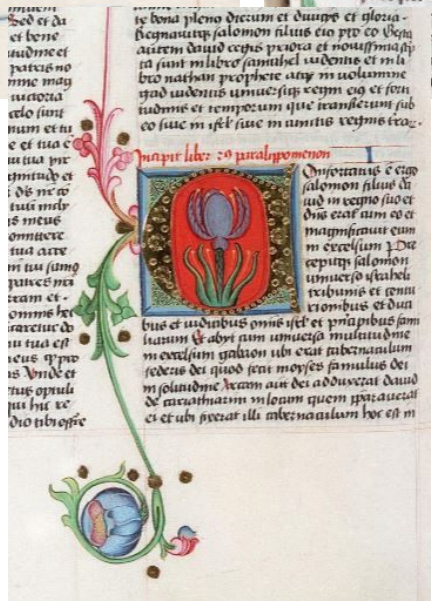 Sed et da
et bene
itudine et
patris no
mme mag
victoria
celo sunt
num et tu
e et tua e
u tua vir
gnitudo et
r ds ne co
tuū incly
s meus
omittere
tua acce
m tui sumꝯ
patres nri
rram et
omms hec
caretur do
u tua est
eus qꝫ pro
s Unde et
tus optuli
qui hic re
dio tibi offre
te bona pleno dierum et divitijs et gloria.
Regnavitqꝫ salomon filius eiꝯ pro eo Gesta
autem david regis priora et novissima scp
ta sunt in libro samuhel videntis et in li
bro nathan prophete atqꝫ in volumine
gad videntis universiqꝫ regni eiꝯ et forti
tudinis et temporum que transierunt sub
eo sive in isrl sive in cunctis regnis trarꝫ.
Incipit liber 2ꝯ paralippomenon
Confortatus e ergo
salomon filius da
vid in regno suo et
dns erat cum eo et
magnificavit eum
in excelsum Pre
cepitqꝫ salomon
universo israheli
tribunis et centu
rionibus et duci
bus et iudicibus omnis isrl et pncipibus fami
liarum Et abijt cum universa multitudine
in excelsum gabaon ubi erat tabernaculum
federis dei quod fecit moyses famulus dei
in solitudine Arcam aut dei adduxerat david
de cariathiarim in locum quem pparaverat
ei et ubi fixerat illi tabernaculum hoc est in